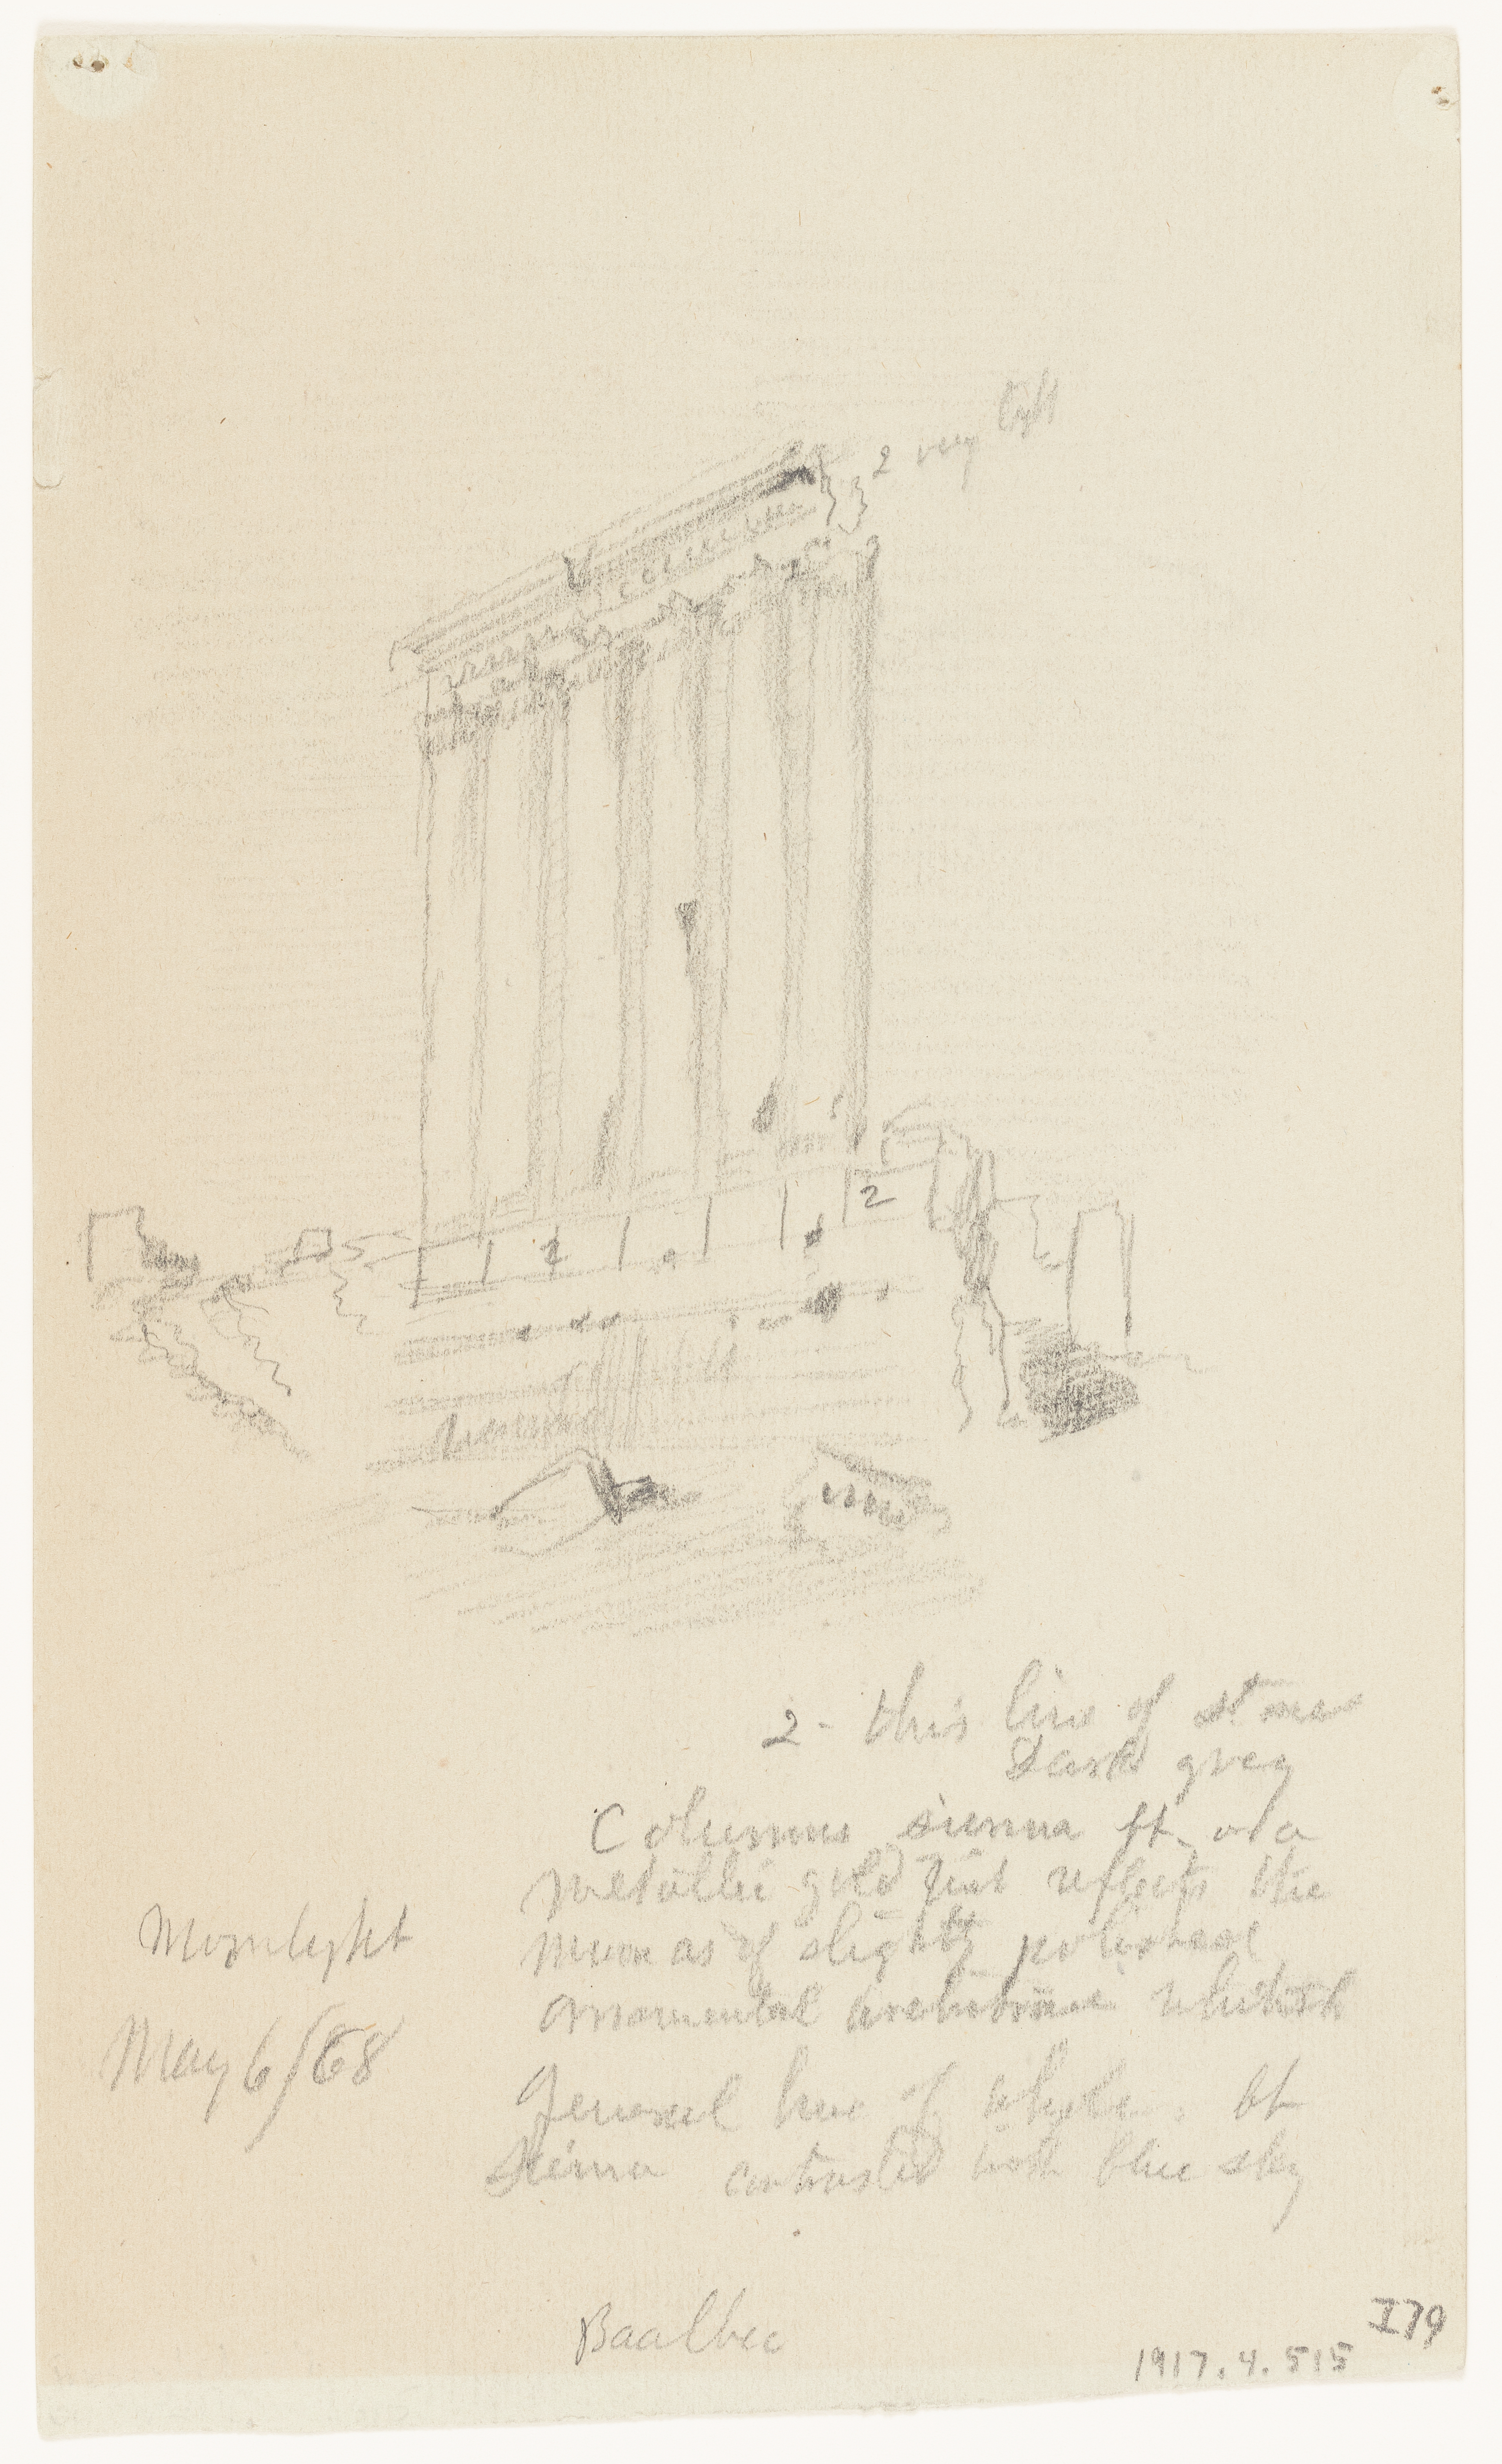 2 very light
2
2
2 - this line of stones
Dark grey
Columns sienna lt. or a
metallic gold that reflects the
moon as if slightly polished
ornamental architrave whitish
General hue of whole. lt
Sienna contrasted with blue sky
Moonlight
May 6/68
Baalbec
I79
1917.4.515